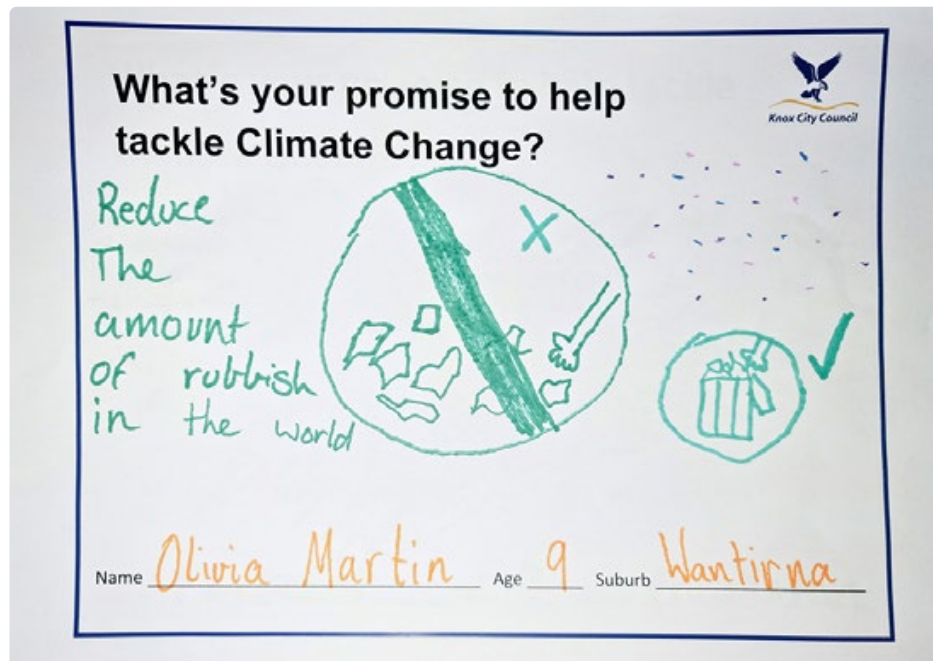 What's your promise to help
tackle Climate Change?
Knox City Council
Reduce
The
amount
of rubbish
in the world
Name Olivia Martin Age 9 Suburb Wantirna